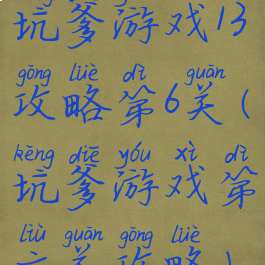 坑爹游戏13
gōng lüè dì guān
攻略第6关(
kēng diē yóu xì dì
坑爹游戏第
liù guān gōng lüè
六关攻略)